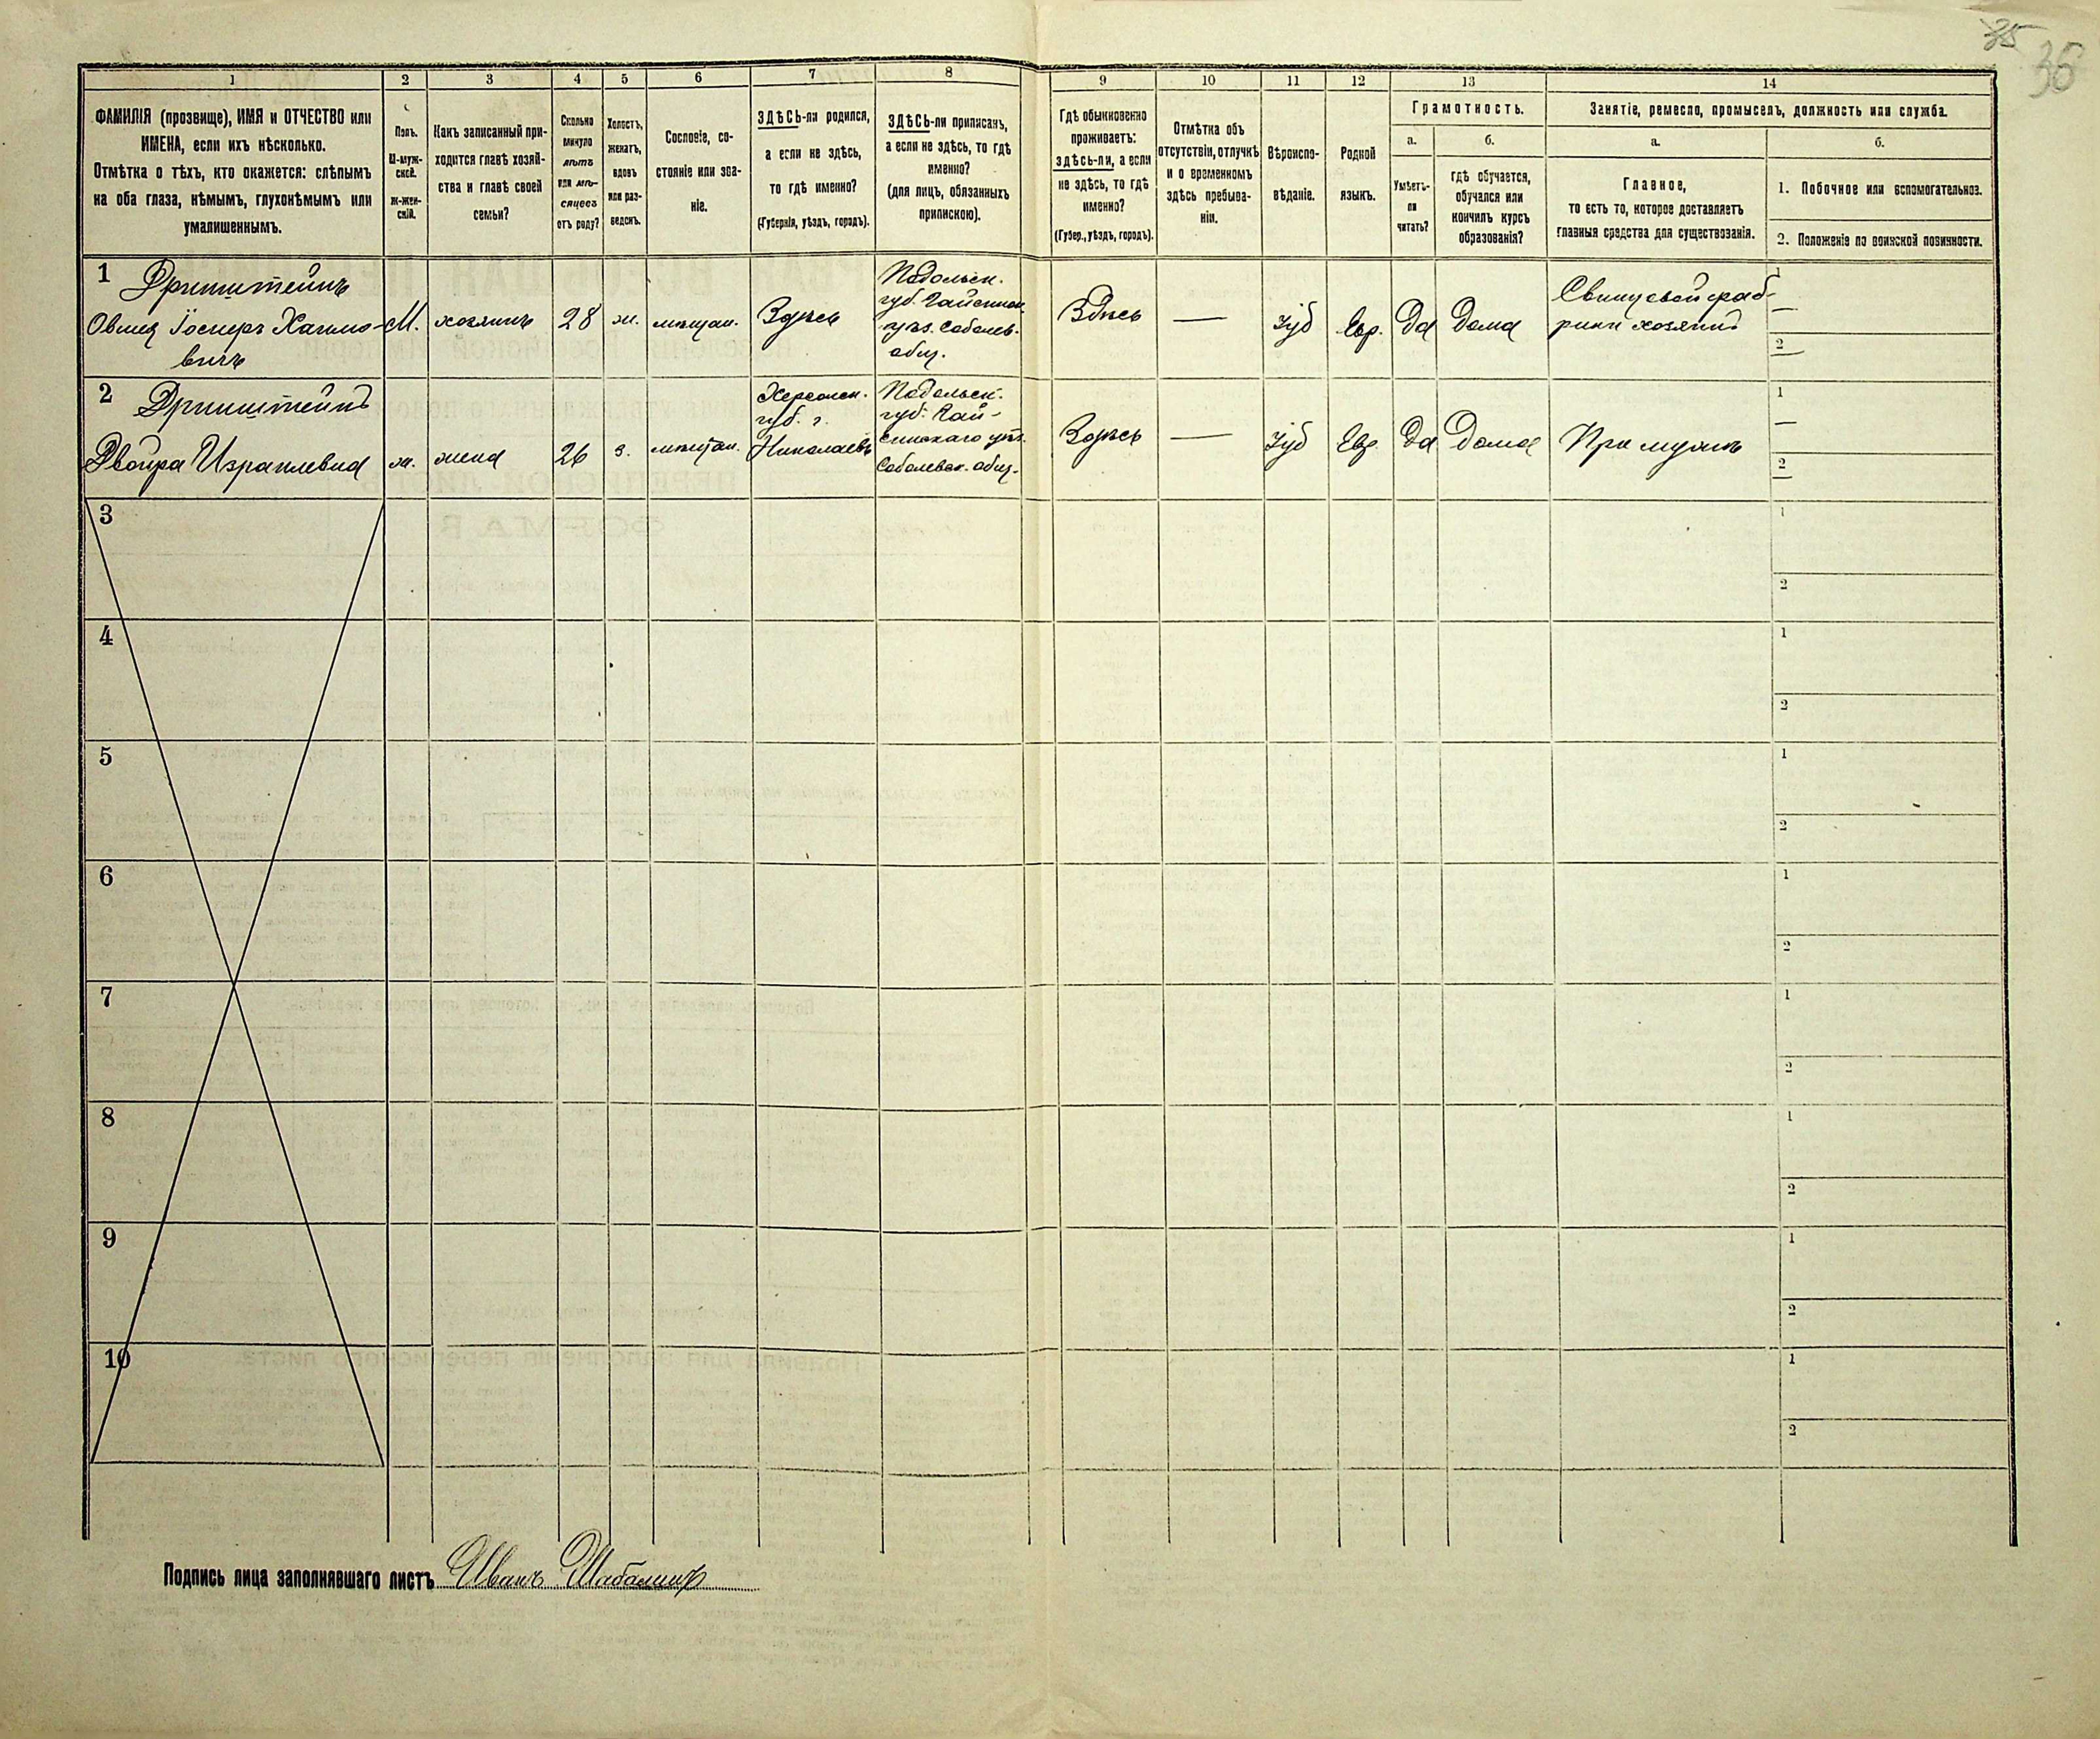 35
36
1 2 3 4 5 6 7 8 9 10 11 12 13 14
ФАМИЛІЯ (прозвище), ИМЯ и ОТЧЕСТВО или
ИМЕНА, если ихъ нѣсколько.
Отмѣтка о тѣхъ, кто окажется: слѣпымъ
на оба глаза, нѣмымъ, глухонѣмымъ или
умалишеннымъ.
Полъ.
М-муж-
ской.
Ж-жен-
скій.
Какъ записанный при-
ходится главѣ хозяй-
ства и главѣ своей
семьи?
Сколько
минуло
лѣтъ
или мѣ-
сяцевъ
отъ роду?
Холостъ,
женатъ,
вдовъ
или раз-
веденъ.
Сословіе, со-
стояніе или зва-
ніе.
ЗДѢСЬ-ли родился,
а если не здѣсь,
то гдѣ именно?
(Губернія, уѣздъ, городъ).
ЗДѢСЬ-ли приписанъ,
а если не здѣсь, то гдѣ
именно?
(для лицъ, обязанныхъ
припискою).
Гдѣ обыкновенно
проживаетъ:
здѣсь-ли, а если
не здѣсь, то гдѣ
именно?
(Губер., уѣздъ, городъ).
Отмѣтка объ
отсутствіи, отлучкѣ
и о временномъ
здѣсь пребыва-
ніи.
Вѣроиспо-
вѣданіе.
Родной
языкъ.
Грамотность.
а.
Умѣетъ-
ли
читать?
б.
гдѣ обучается,
обучался или
кончилъ курсъ
образованія?
Занятіе, ремесло, промыселъ, должность или служба.
а.
Главное,
то есть то, которое доставляетъ
главныя средства для существованія.
б.
1. Побочное или вспомогательное.
2. Положеніе по воинской повинности.
1
М. хозяинъ 28 ж. мѣщан. Здѣсь
Подольск.
губ. Гайсинск.
уѣз. Соболев.
общ.
Здѣсь — Іуд Евр. Да Дома
Свинцовой фаб-
рики хозяинъ
1
—
2
2
Двойра Израилевна ж. жена 26 з. мѣщан.
Херсонск.
губ. г.
Николаевъ
Подольск.
губ. Гай-
синскаго уѣз.
Соболевск. общ.
Здѣсь — Іуд Евр. Да Дома При мужѣ
1
—
2
3
1
2
4
1
2
5
1
2
6
1
2
7
1
2
8
1
2
9
1
2
10
1
2
Подпись лица заполнявшаго листъ Иванъ